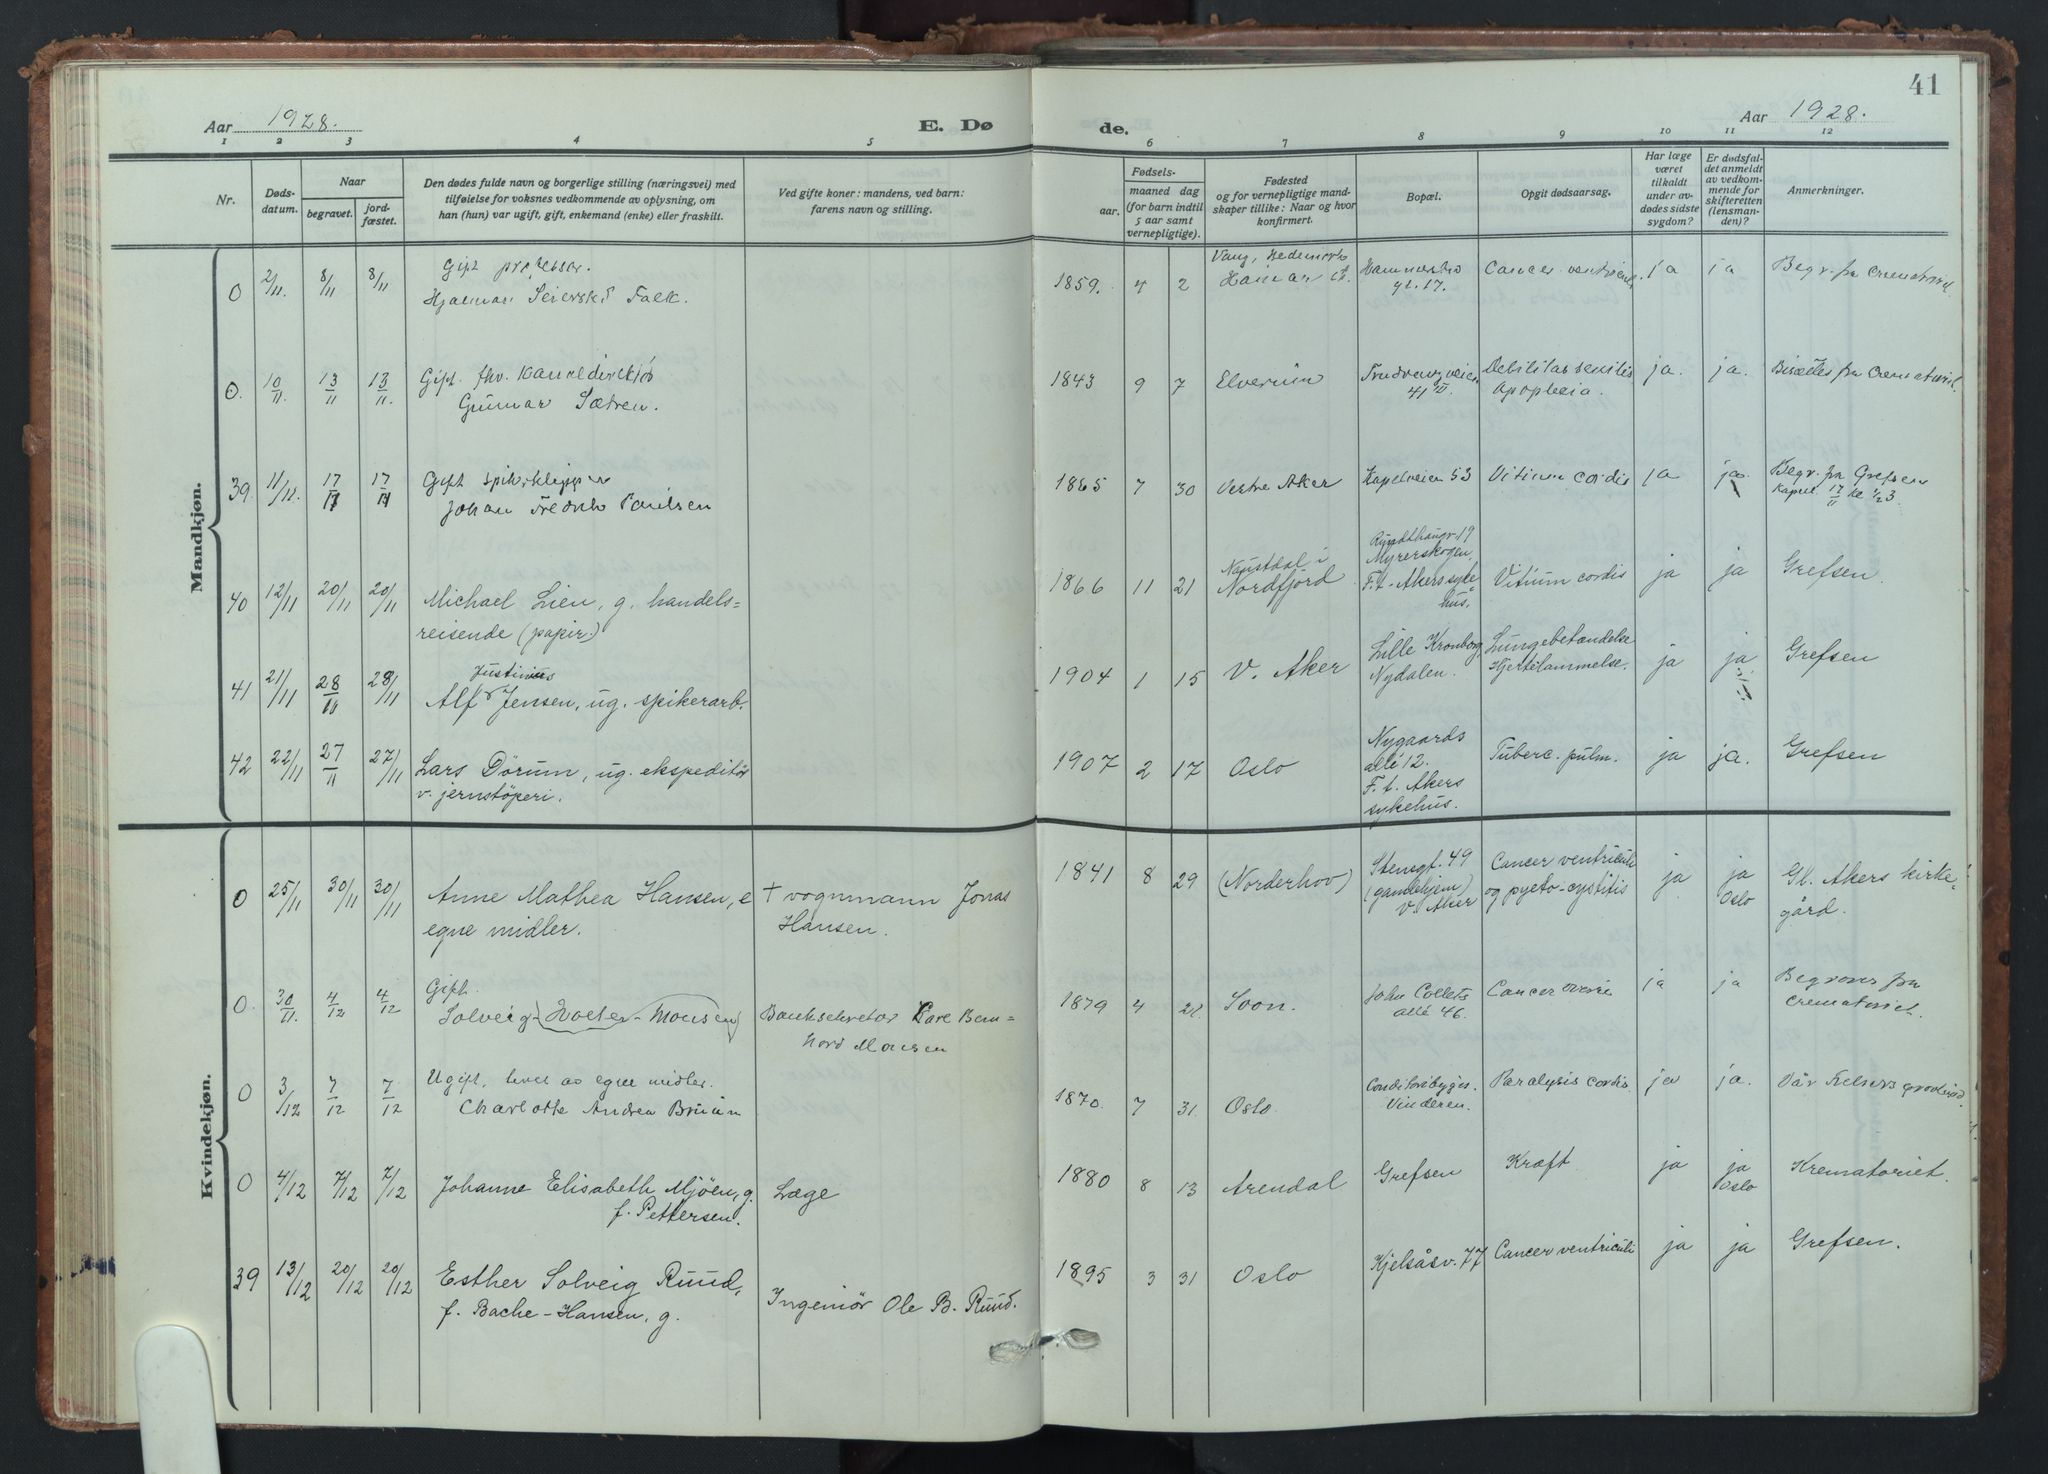 41
Aar 1928.
E. Dø
de.
Aar 1928.
1 2 3 4 5 6 7 8 9 10 11 12
Nr.
Døds-
datum.
Naar
begravet.
jord-
fæstet.
Den dødes fulde navn og borgerlige stilling (næringsvei) med
tilføielse for voksnes vedkommende av oplysning, om
han (hun) var ugift, gift, enkemand (enke) eller fraskilt.
Ved gifte koner: mandens, ved barn:
farens navn og stilling.
Fødsels-
aar.
maaned dag
(for barn indtil
5 aar samt
vernepligtige).
Fødested
og for vernepligtige mand-
skaper tillike: Naar og hvor
konfirmert.
Bopæl.
Opgit dødsaarsag.
Har læge
været
tilkaldt
under av-
dødes sidste
sygdom?
Er dødsfal-
det anmeldt
av vedkom-
mende for
skifteretten
(lensman-
den)?
Anmerkninger.
Mandkjøn.
0 2/11. 8/11 8/11
Gift professor.
Hjalmar Seiersted Falk.
1859. 4 2
Vang, Hedemark
Hamar
Cancer ventriculi
ja ja
Begr. fra Crematoriet.
0. 10/11. 13/11 13/11.
Gift. fhv. Kanaldirektør
Gunnar Sætren.
1843 9 7 Elverum
Trudvangveien
41 II.
Debilitas senilis
Apoplexia.
ja. ja.
Bisættes fra Crematoriet.
39. 11/11. 17/11 17/11
Gift spikerklipper
Johan Fredrik Paulsen
1865 7 30 Vestre Aker
Kapelveien 53
Vitium cordis
ja ja
Begr. fra Grefsen
Kapel 17/11 kl 1/2 3.
40 12/11 20/11 20/11
Michael Lien, g. handels=
reisende (papir.)
1866 11 21
Naustdal i
Nordfjord
Myrerskogen,
F.t. Akers syke
hus.
Vitium cordis
ja ja
Grefsen.
41 21/11 28/11 28/11
Justinius
Alf Jensen, ug. spikerarb.
1904 1 15 V. Aker
Lille Kronborg,
Nydalen.
Lungebetændelse
Hjertelammelse.
ja ja
Grefsen
42 22/11 27/11 27/11
Lars Dörum, ug. ekspeditör
v. jernstöperi.
1907 2 17 Oslo
Nygaards
allé 12.
F. t. Akers
sykehus.
Tuberc. pulm.
ja ja.
Grefsen
Kvindekjøn.
0 25/11 30/11 30/11
Anne Mathea Hansen, e
egne midler.
+ vognmann Jonas
Hansen.
1841 8 29 (Norderhov)
Stensgt. 49
(gamlehjem)
V. Aker
Cancer ventriculi
og pyeto-cystitis
ja ja
Oslo
Gl. Akers kirke-
gård.
0. 30/11. 4/12 4/12
Gift.
Solveig Holter-Monsen
Banksekretær Care Bern=
hard Monsen
1879 4 Soon.
John Colletts
allé 46.
Cancer ovarie
ja ja
Begraves fra
Crematoriet.
0 3/12 7/12 7/12
Ugift, levet av egne midler.
Charlotte Andrea Bruun
1870. 7 31. Oslo.
Conditoribyg.
Vinderen.
Paralysis cordis.
ja ja.
Vår Frelsers gravlund.
0 4/12 7/12 7/12
Johanne Elisabeth Mjöen, g.
f. Pettersen.
Læge
1880 8 13 Arendal
Grefsen
Kræft
ja ja
Oslo
Krematoriet.
39 13/12 20/12 20/12
Esther Solveig Ruud,
f. Bache-Hansen, g.
Ingeniör Ole B. Ruud.
1895 3 31 Oslo
Kjelsåsv. 77
Cancer ventriculi
ja ja
Grefsen.